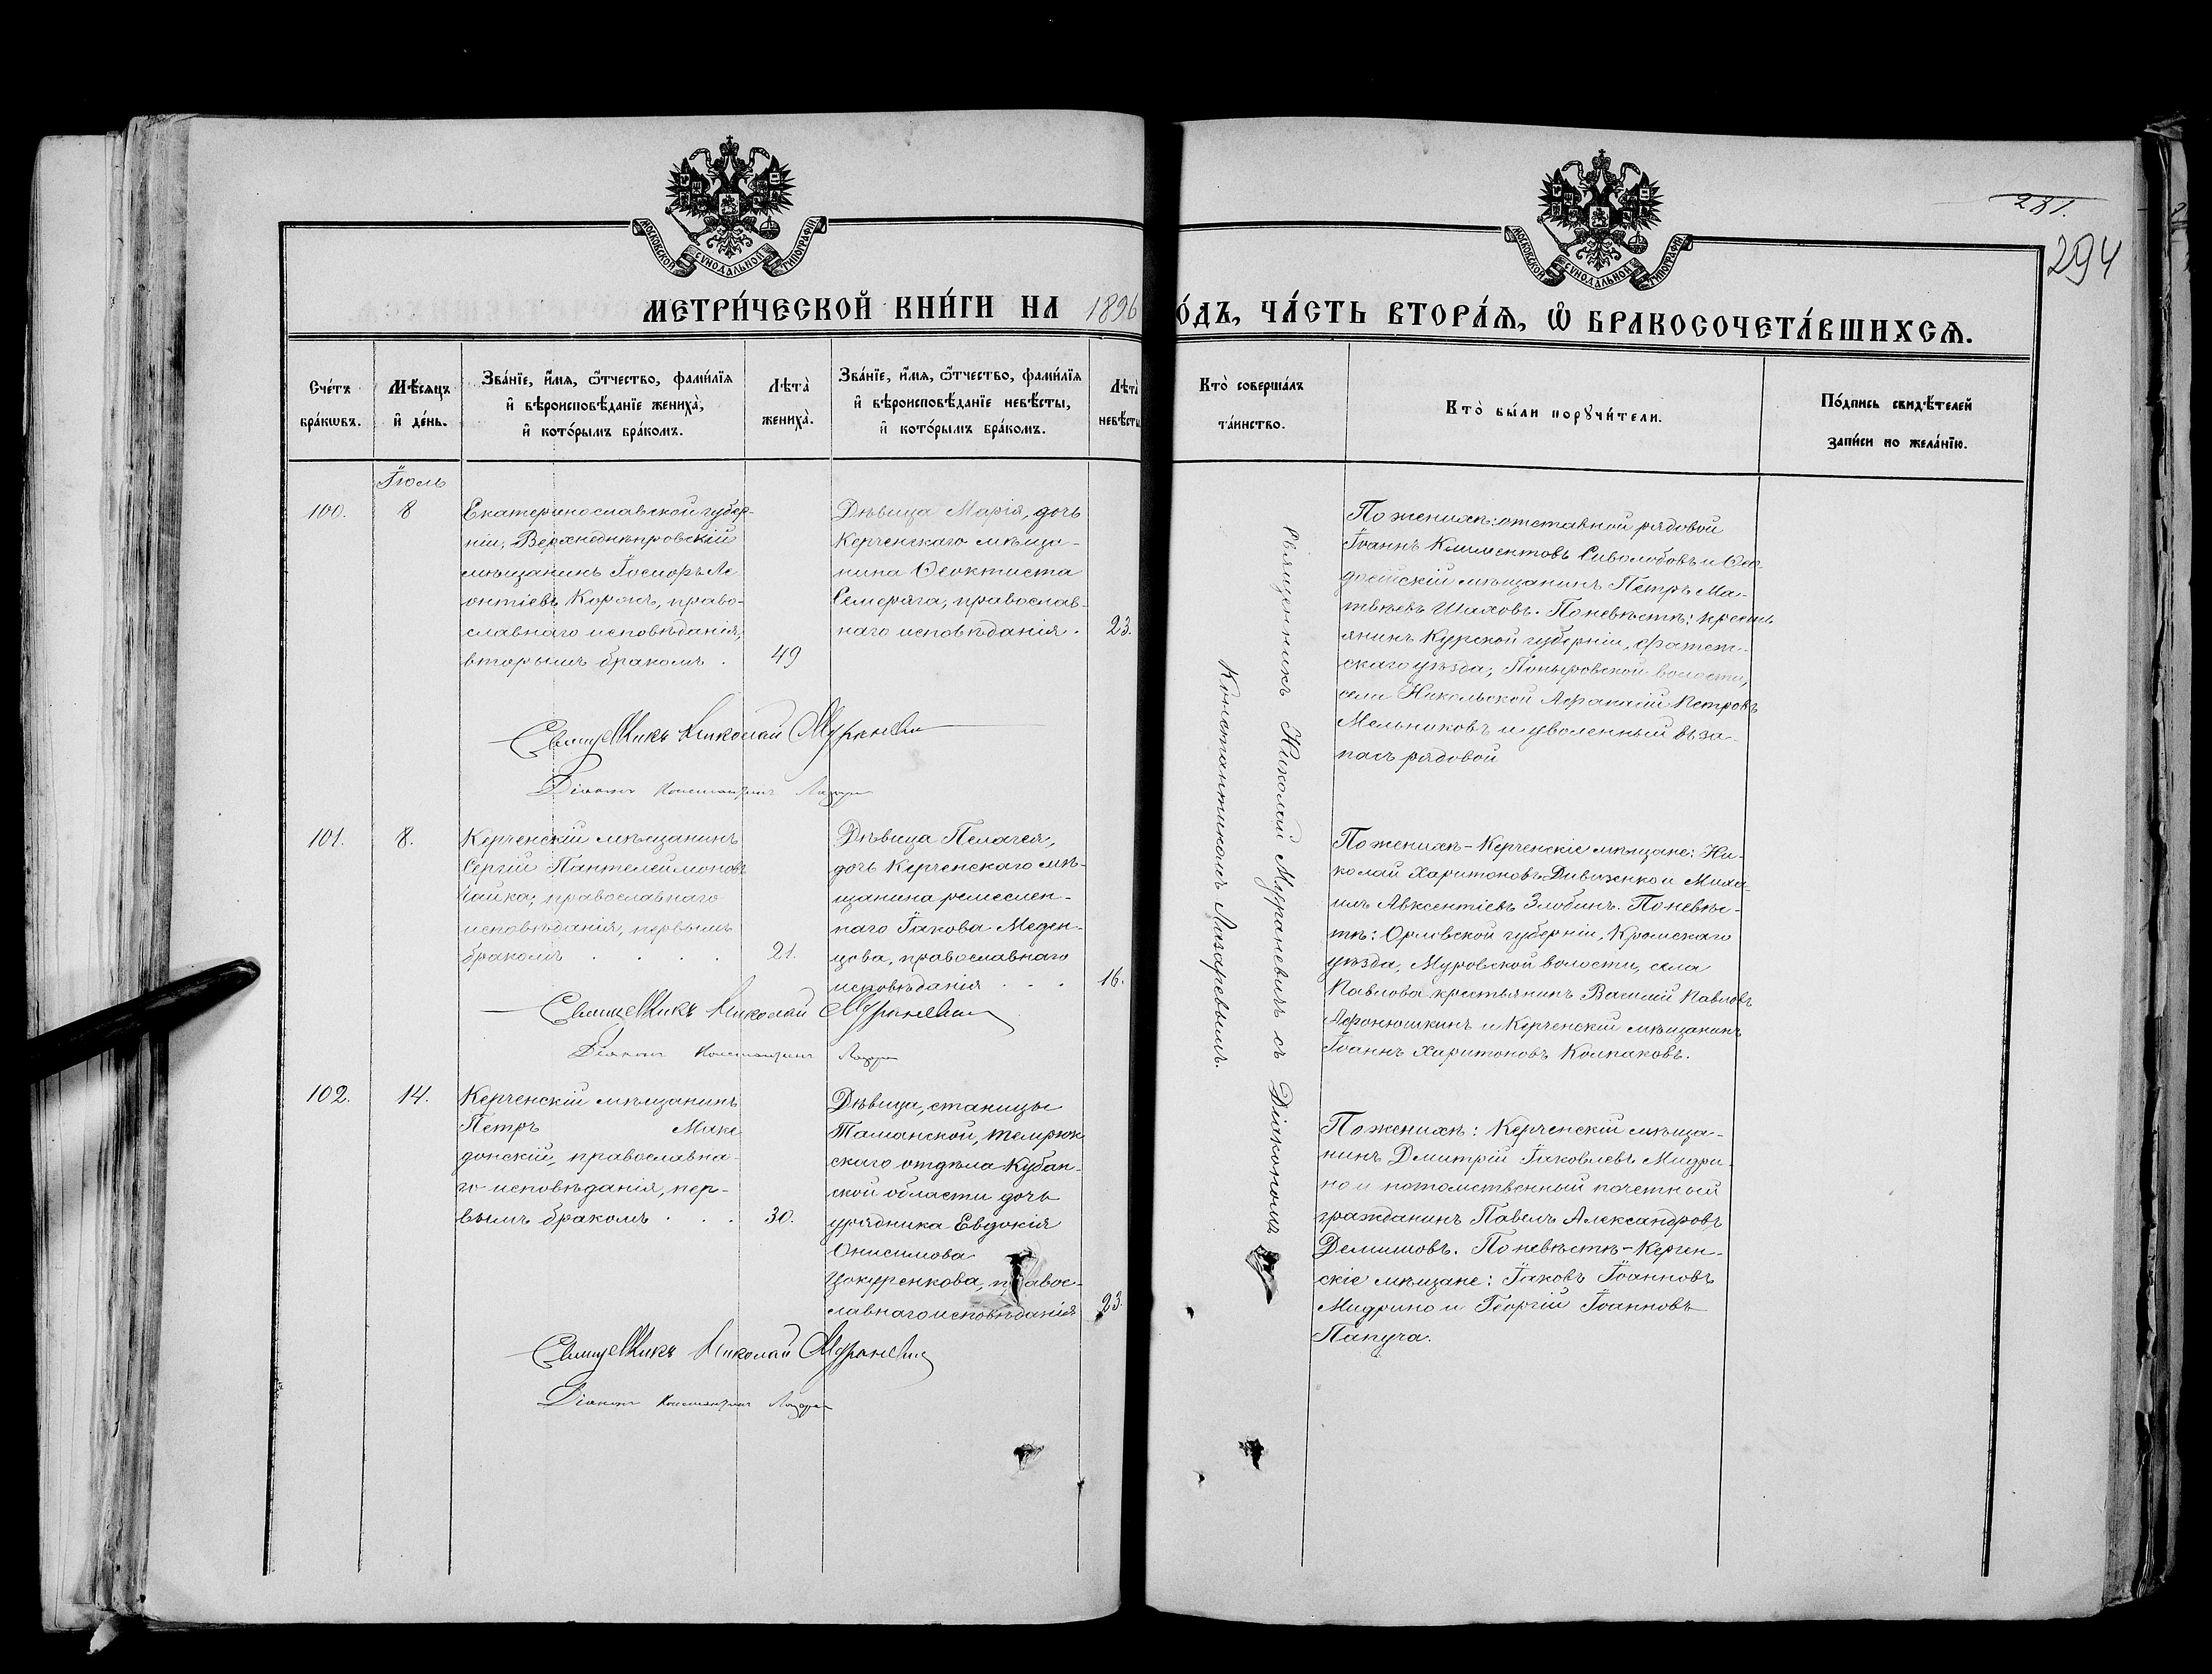 281.
294
МОСКОВСКОЙ СѴНОДАЛЬНОЙ ТИПОГРАФІИ
МОСКОВСКОЙ СѴНОДАЛЬНОЙ ТИПОГРАФІИ
МЕТРИ́ЧЕСКОЙ КНИ́ГИ НА 1896
О́ДЪ, ЧА́СТЬ ВТОРА́Ѧ, Ѽ БРАКОСОЧЕТА́ВШИХСѦ.
Сче́тъ бра́кωвъ.
Мѣ́сяцъ и҆ де́нь.
Зва́нїе, и҆́мѧ, ѻ҆́тчество, фами́лїѧ
и҆ вѣроисповѣ́данїе жениха̀,
и҆ кото́рымъ бра́комъ.
Лѣта̀ жениха̀.
Зва́нїе, и҆́мѧ, ѻ҆́тчество, фами́лїѧ
и҆ вѣроисповѣ́данїе невѣ́сты,
и҆ кото́рымъ бра́комъ.
Лѣта̀ невѣ́сты
Кто̀ соверша́лъ
та́инство.
Кто̀ бы́ли порꙋчи́тели.
По́дпись свидѣ́телей
за́писи по жела́нїю.
Іюль
100.
8
Екатеринославской губер-
ніи, Верхнеднѣпровскій
мѣщанинъ Ле
онтіевъ право-
славнаго исповѣданія,
вторымъ бракомъ .
49
Дѣвица Марія, дочь
Керченскаго мѣща-
нина Ѳеоктиста
Семеряга, православ-
наго исповѣданія .
23.
По женихѣ: отставной рядовой
Іоаннъ Климентовъ Сиволобовъ и Ѳео-
досійскій мѣщанинъ Петръ Ма-
твѣевъ Шаховъ. По невѣстѣ: крест
янинъ Курской губерніи, Фатеж-
скаго уѣзда, Поныровской волости,
села Никольской Аѳанасій Петровъ
Мельниковъ и уволенный въ за-
пасъ рядовой
Священникъ Николай Мураневи
Діаконъ Константинъ Лазаре
101.
8.
Керченскій мѣщанинъ
Сергій Пантелеймоновъ
православнаго
исповѣданія, первымъ
бракомъ . . . .
21.
Дѣвица Пелагея,
дочь Керченскаго мѣ-
щанина ремеслен-
наго Іакова Меден-
цова, православнаго
исповѣданія . . .
16.
По женихѣ - Керченскіе мѣщане: Ни-
колай Харитоновъ и Миха-
илъ Авксентіевъ Злобинъ. По невѣс-
тѣ: Орловской губерніи, Кромскаго
уѣзда, Муровской волости, села
Павлова крестьянинъ Василій Павловъ
Афонюшкинъ и Керченскій мѣщанинъ
Іоаннъ Харитоновъ Колпаковъ.
Священникъ Николай Мураневи
Діаконъ Константинъ Лазаре
102.
14.
Керченскій мѣщанинъ
Петръ Маке
донскій, православна-
го исповѣданія, пер-
вымъ бракомъ . . .
30.
Дѣвица, станицы
Таманской, Темрюк
скаго отдѣла Кубан-
ской области дочь
урядника Евдокія
Онисимова
Цокуренкова, правос-
лавнаго исповѣданія
23.
По женихѣ: Керченскій мѣща-
нинъ Дмитрій Іаковлевъ Мидри-
но и потомственный почетный
гражданинъ Павелъ Александровъ
Демишовъ. По невѣстѣ - Керчен-
скіе мѣщане: Іаковъ Іоанновъ
Мидрино и Георгій Іоанновъ
Папуча.
Священникъ Николай Мураневи
Діаконъ Константинъ Лазаре
Священникъ Николай Мураневичъ съ Діакономъ
Константиномъ Лазаревымъ.